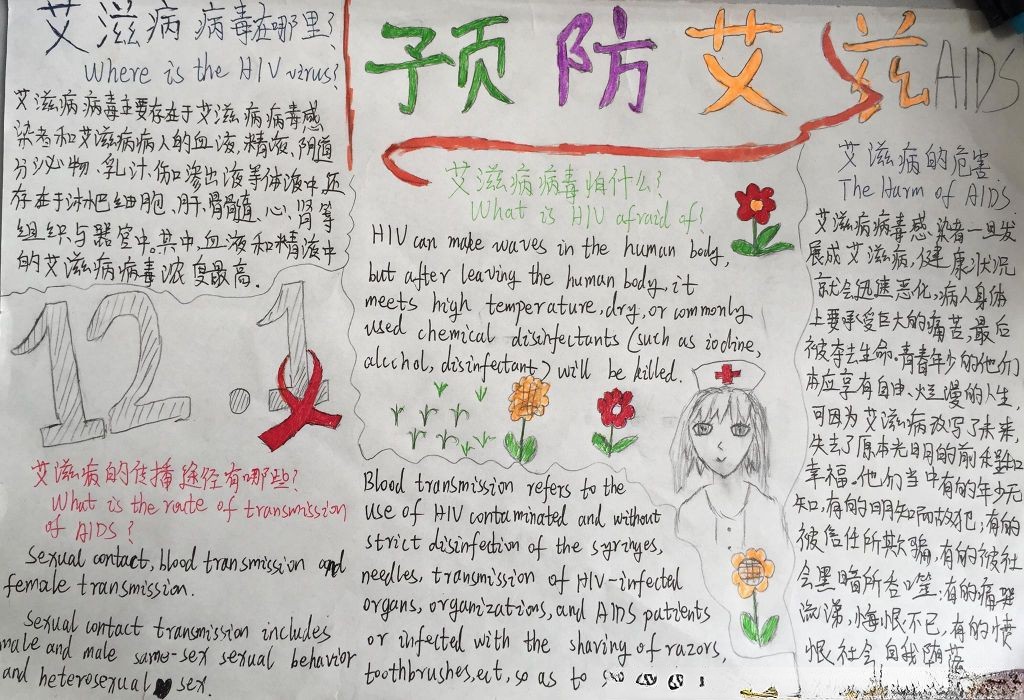 艾滋病病毒在哪里?
Where is the HIV virus?
艾滋病病毒主要存在于艾滋病病毒感
染者和艾滋病病人的血液、精液、阴道
分泌物、乳汁、伤口渗出液等体液中,还
存在于淋巴细胞、肝、骨髓、心、肾等
组织与器官中,其中,血液和精液中
的艾滋病病毒浓度最高.
预防艾滋AIDS
艾滋病病毒怕什么?
What is HIV afraid of?
HIV can make waves in the human body,
but after leaving the human body, it
meets high temperature, dry, or commonly
used chemical disinfectants (such as iodine,
alcohol, disinfectant) will be killed.
12.1
艾滋病的传播途径有哪些?
What is the route of transmission
of AIDS?
Sexual contact, blood transmission and
female transmission.
Sexual contact transmission includes
male and male same-sex sexual behavior
and heterosexual sex.
Blood transmission refers to the
use of HIV contaminated and without
strict disinfection of the syringes,
needles, transmission of HIV-infected
organs, organizations, and AIDS patients
or infected with the shaving of razors,
toothbrushes, ect, so as to
艾滋病的危害
The Harm of AIDS
艾滋病病毒感染者一旦发
展成艾滋病,健康状况
就会迅速恶化,病人身体
上要承受巨大的痛苦,最后
被夺去生命.青青年少的他们
本应享有自由、烂漫的人生,
可因为艾滋病改写了未来,
失去了原本光明的前和
幸福.他们当中有的年少无
知,有的明知而故犯;有的
被信任所欺骗,有的被社
会黑暗所吞噬;有的痛哭
流涕,悔恨不已,有的愤
恨社会,自我堕落